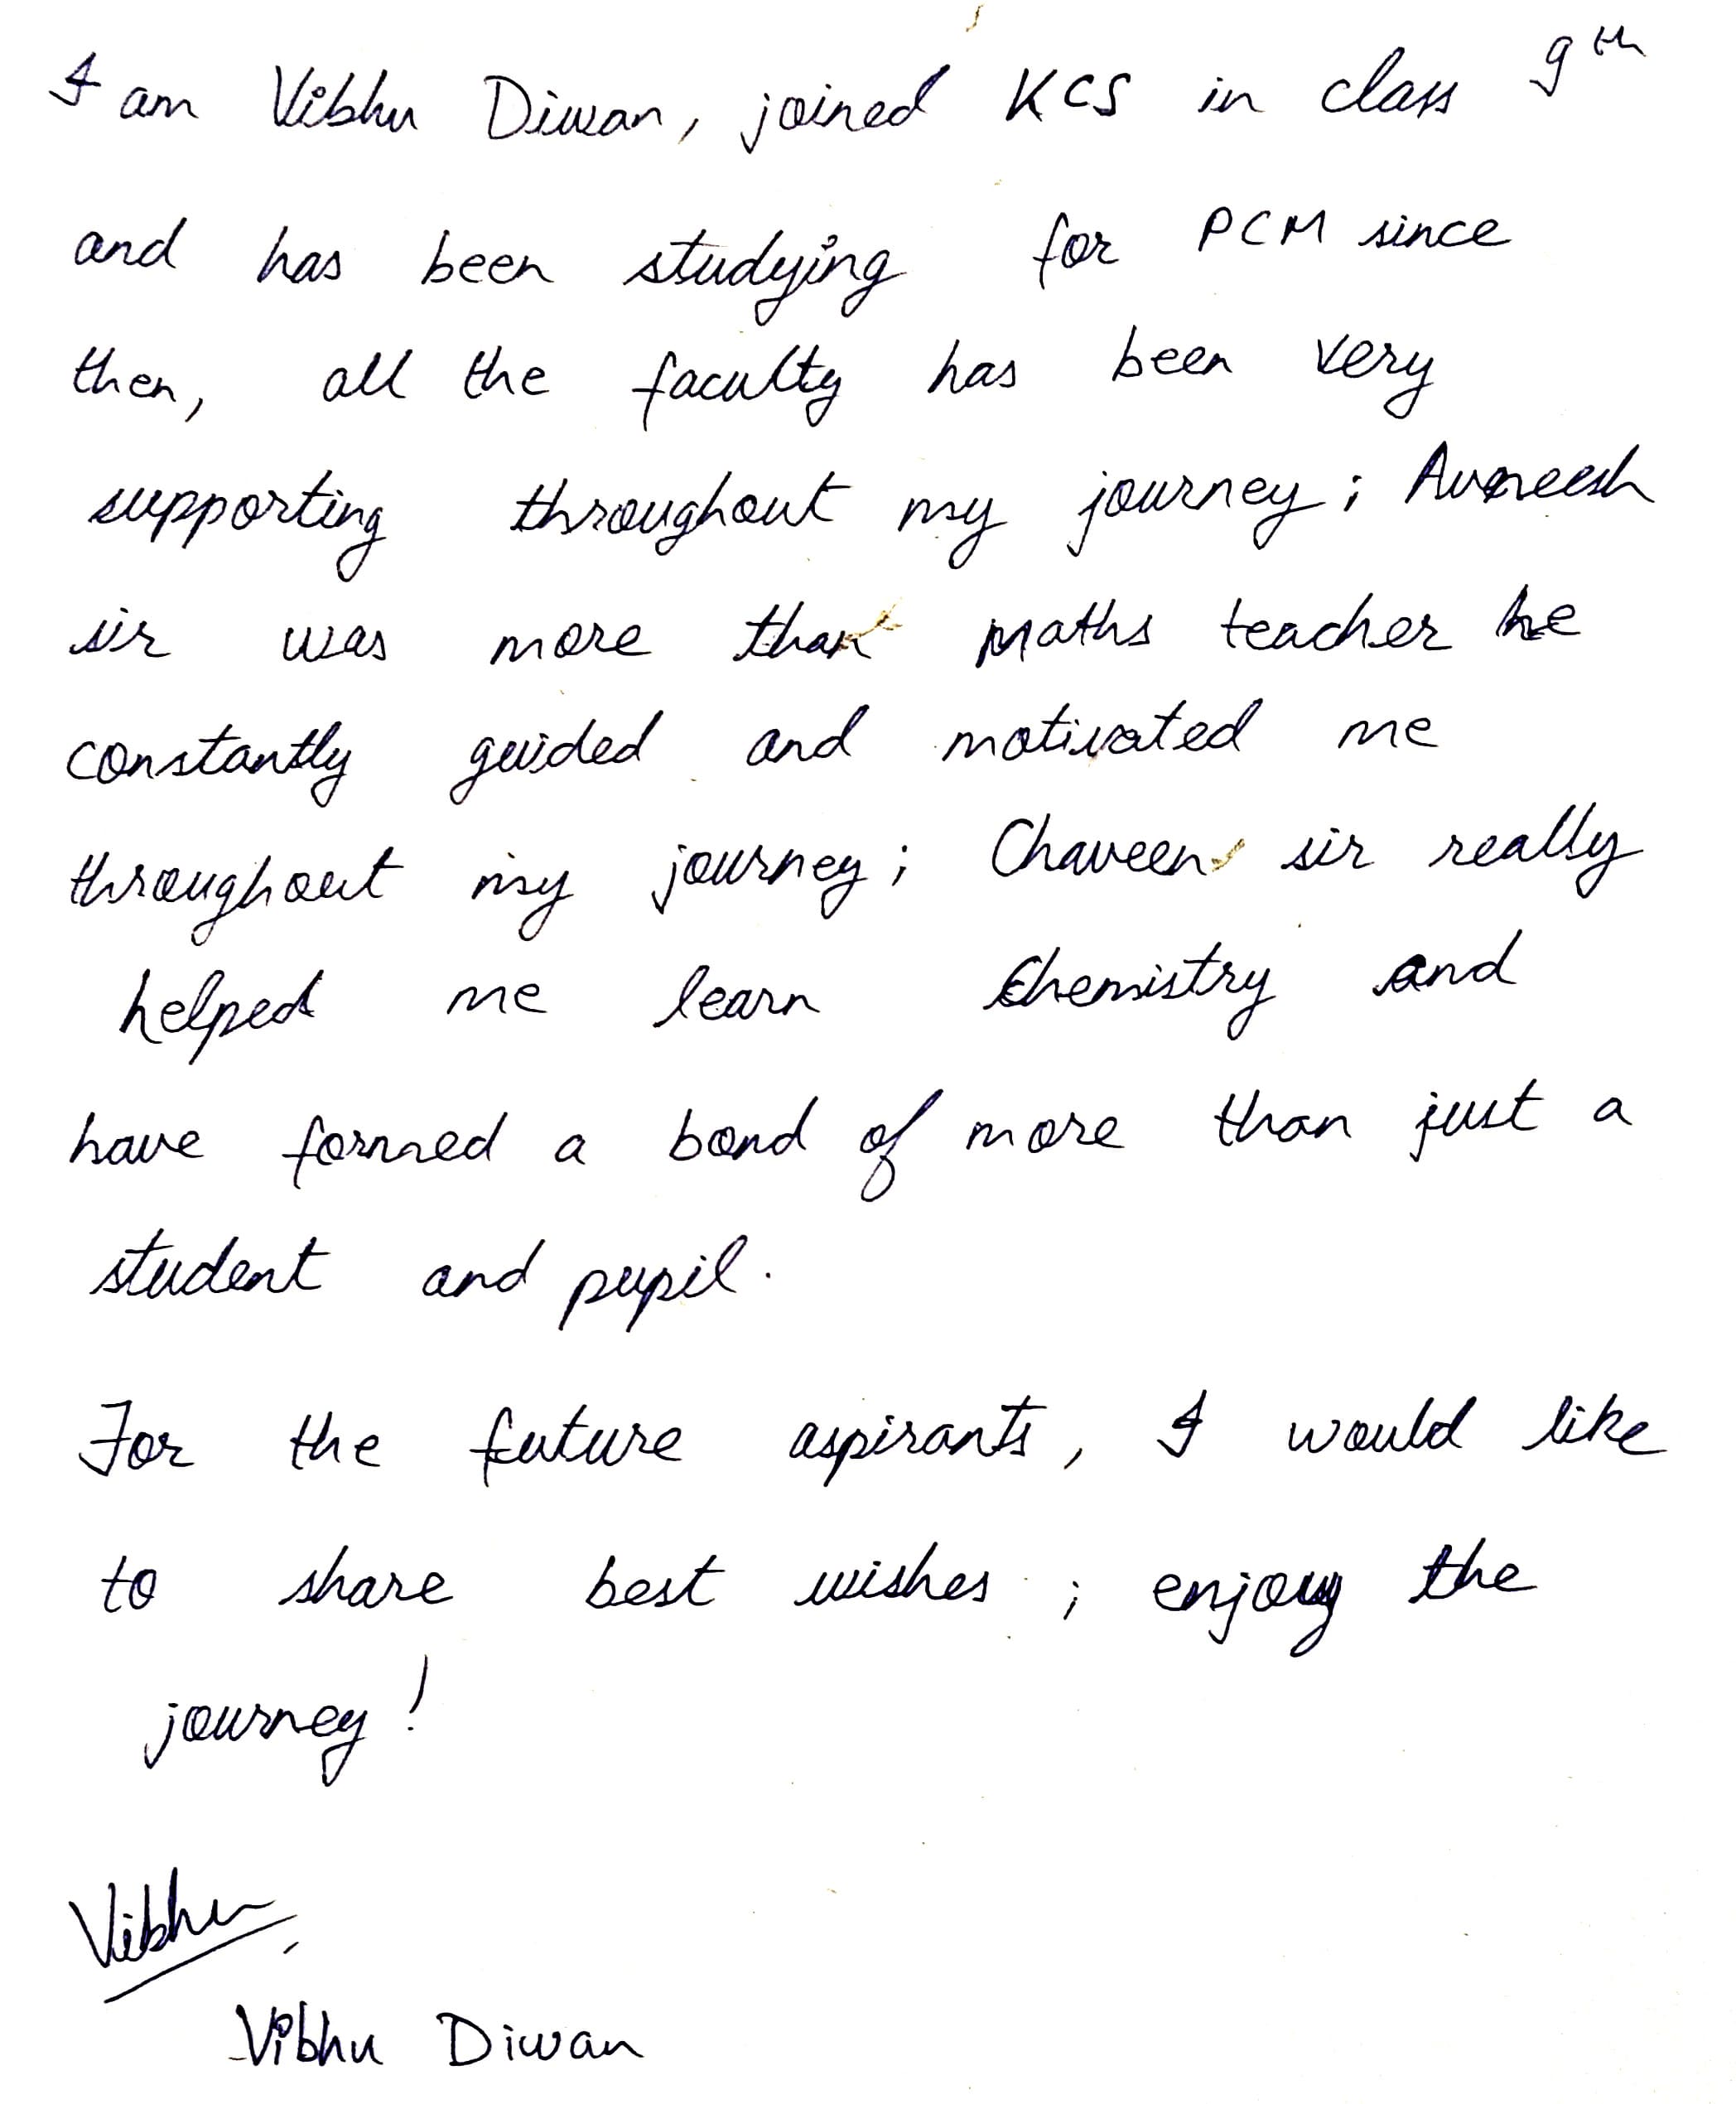 I am Vibhu Diwan, joined KCS in class 9th
and has been studying for PCM since
then, all the faculty has been very
supporting throughout my journey; Avneesh
sir was more than maths teacher he
constantly guided and motivated me
throughout my journey; Chaveen sir really
helped me learn Chemistry and
have formed a bond of more than just a
student and pupil.
For the future aspirants, I would like
to share best wishes; enjoy the
journey!
Vibhu,
Vibhu Diwan